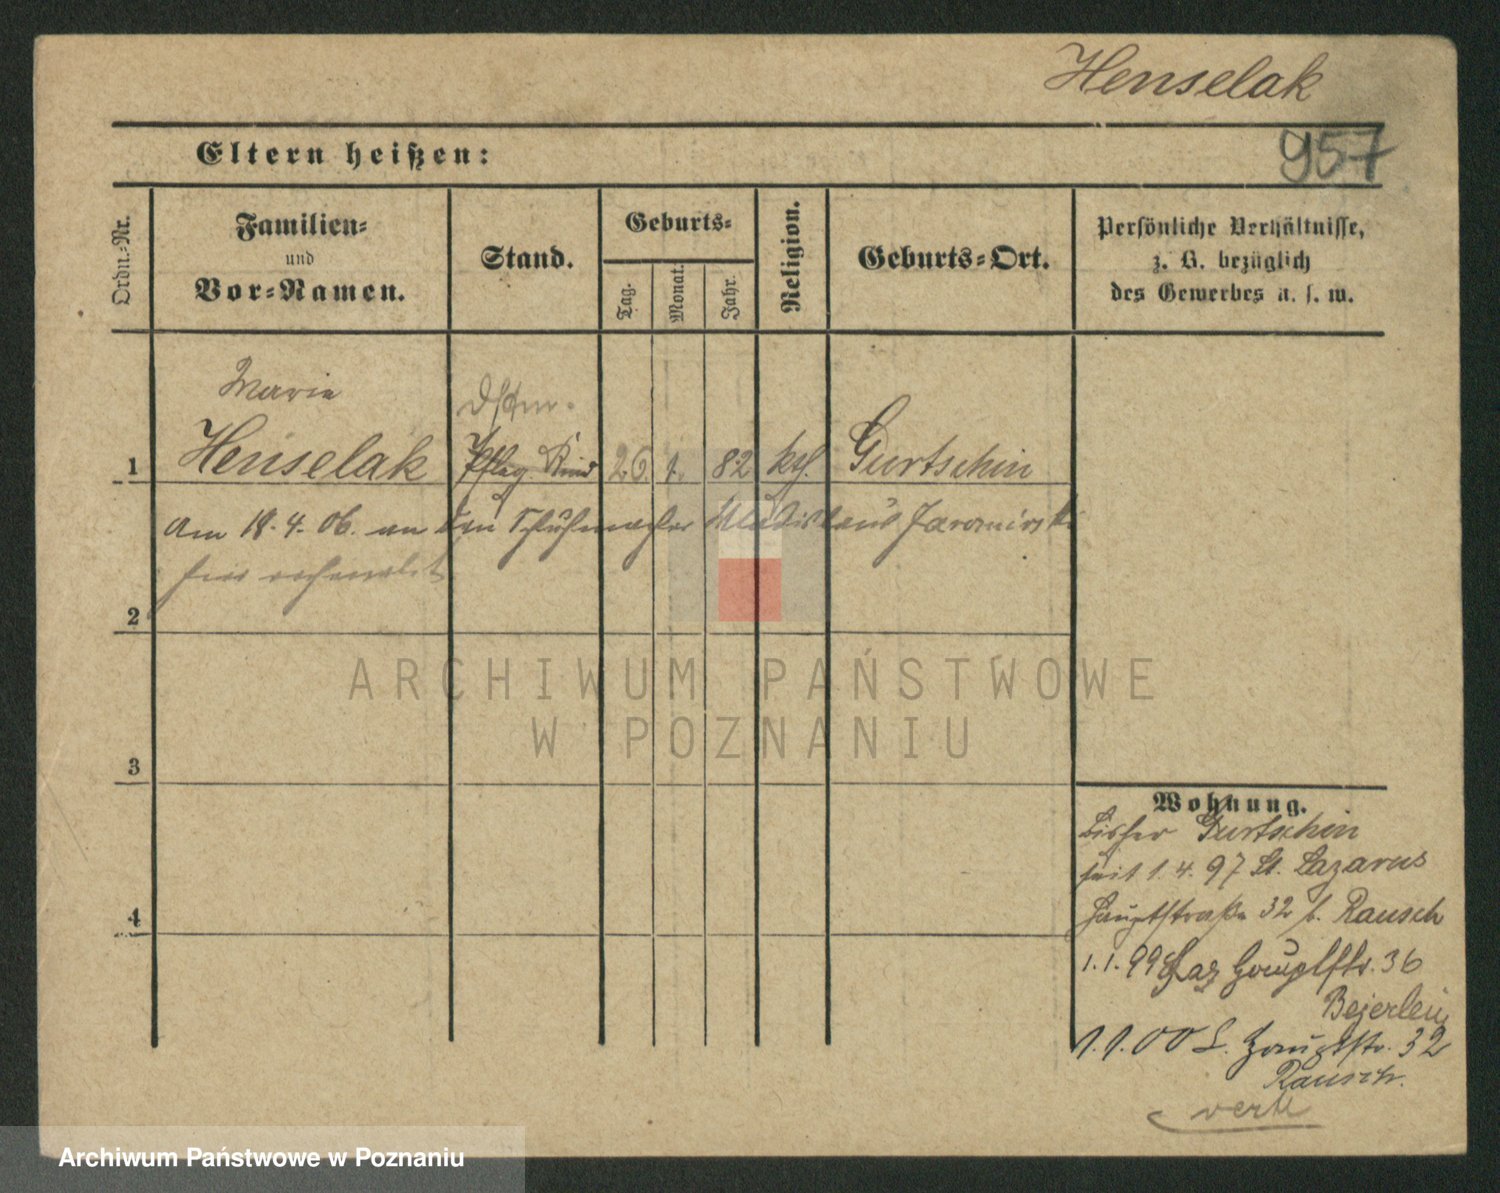 Henselak
957
Eltern heißen:
Ordn.-Nr.
Familien-
und
Vor-Namen.
Stand.
Geburts-
Tag.
Monat.
Jahr.
Religion.
Geburts-Ort.
Persönliche Verhältnisse,
z. B. bezüglich
des Gewerbes u. s. w.
Marie
1 Henselak Pfleg. Kind 26 1. 82 kth. Gurtschin
Am 18.4.06. an den Schuhmacher Wladislaus Jaromirski
hier verheiratet
2
3
4
ARCHIWUM PAŃSTWOWE
W POZNANIU
Wohnung.
Bisher Gurtschin
seit 1.4.97 St. Lazarus
Hauptstraße 32 b. Rausch
1.1.99 Laz Hauptstr. 36
Bejerlein
1.1.00 L. Hauptstr. 32
Rausch.
verte
Archiwum Państwowe w Poznaniu